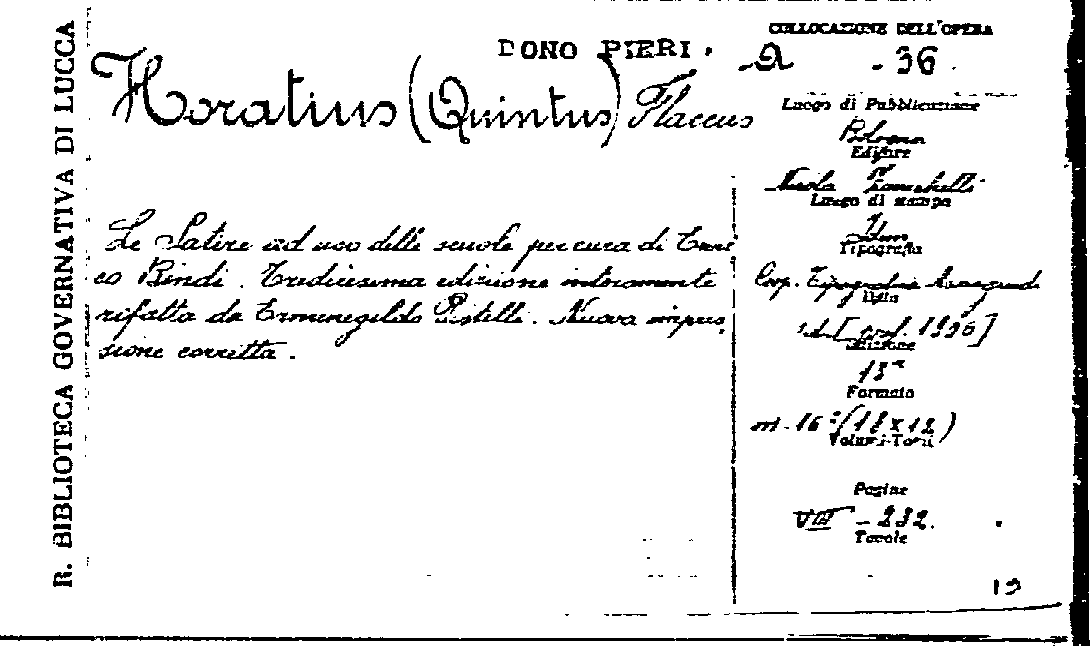 R. BIBLIOTECA GOVERNATIVA DI LUCCA
DONO PIERI.
Horatius (Quintus) Flaccus
Le Satire ad uso delle scuole per cura di Enri
co Bindi. Tredicesima edizione interamente
rifatta da Ermenegildo Pistelli. Nuova impres
sione corretta.
COLLOCAZIONE DELL'OPERA
- 36
Luogo di Pubblicazione
Bologna
Editore
Nicola Zanichelli
Luogo di stampa
Idem
Tipografia
Coop. Tipografia Azzoguidi
Data
[pref. 1896]
Edizione
13ª
Formato
in-16°(18x12)
Volumi-Tomi
Pagine
VIII - 232.
Tavole
19